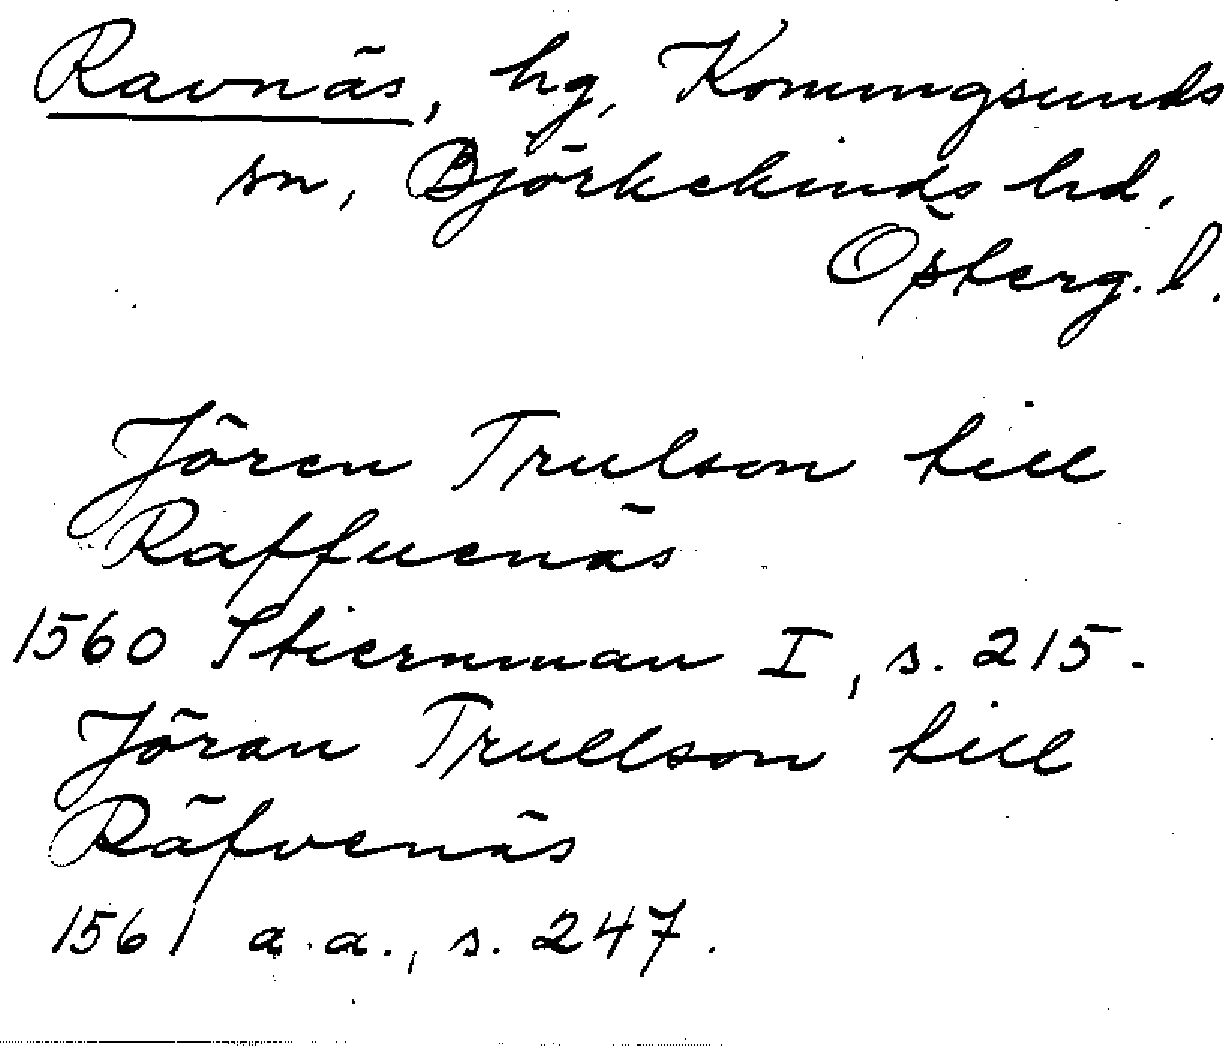 Ravnäs, hg, Konungsunds
sn, Björkekinds hd.
Östерg. l.
Jören Trulson till
Raffuenäs
1560 Stiernman I, s. 215.
Jöran Trullson till
Räfvenäs
1561 a.a., s. 247.